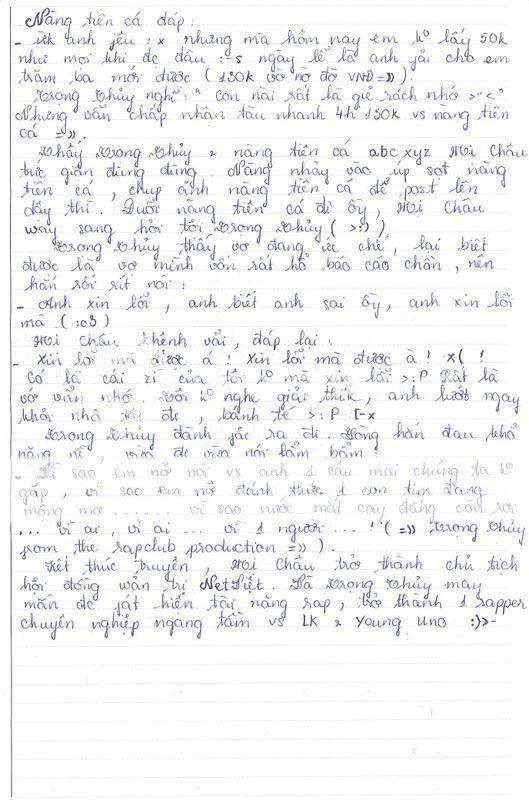 Nàng tiên cá đáp:
- ừk anh iêu :x nhưng mà hôm nay em k⁰ lấy 50k
như mọi khi đc đâu :-s ngày lễ là anh fải cho em
trăm ba mới được (130k vờ nờ đờ VNĐ =)) ).
Trọng Thủy nghĩ: " Con này rất là giẻ rách nhớ >"<"
Nhưng vẫn chấp nhận tàu nhanh 4h 130k vs nàng tiên
cá =)).
Thấy Trọng Thủy & nàng tiên cá abc xyz, Mị Châu
tức giận đùng đùng. Nàng nhảy vào úp sọt nàng
tiên cá, chụp ảnh nàng tiên cá để post lên
dấy thì. Đuổi nàng tiên cá đi ồy, Mị Châu
way sang hỏi tội Trọng Thủy ( >:) ).
Trọng Thủy thấy vợ đang ức chế, lại biết
được là vợ mình vốn rất hổ báo cáo chồn, nên
hắn rối rít nói:
- Anh xin lỗi, anh biết anh sai ồy, anh xin lỗi
mà ( :o3 )
Mị Châu khênh vãi, đáp lại:
- Xin lỗi mà được á! Xin lỗi mà được à! x( !
Có là cái zì của tôi k⁰ mà xin lỗi >:P Rất là
vớ vẩn nhớ. Tôi k⁰ nghe giải thík, anh lướt ngay
khỏi nhà tôi đi, bánh tẻ >:P [-x
Trọng Thủy đành fải ra đi. Lòng hắn đau khổ
nặng nĩ, vừa đi vừa nói lẩm bẩm:
- Vì sao em nỡ nói vs anh 1 câu mai chúng ta k⁰
gặp, vì sao em nỡ đánh thức 1 con tim đang
mộng mơ ....... vì sao nước mắt cay đắng còn rơi
... vì ai, vì ai ... vì 1 người ... ! ( =)) Trọng Thủy
from the rapclub production =)) ).
Kết thúc truyện, Mị Châu trở thành chủ tịch
hội đồng wản trị NetViệt. Và Trọng Thủy may
mắn đc fát hiện tài năng rap, trở thành 1 rapper
chuyên nghiệp ngang tầm vs LK & Young Uno :)>-